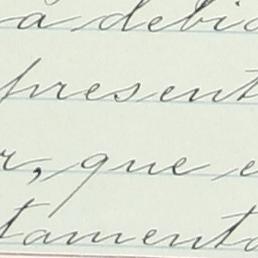 a debid
present
r, que e
tamento